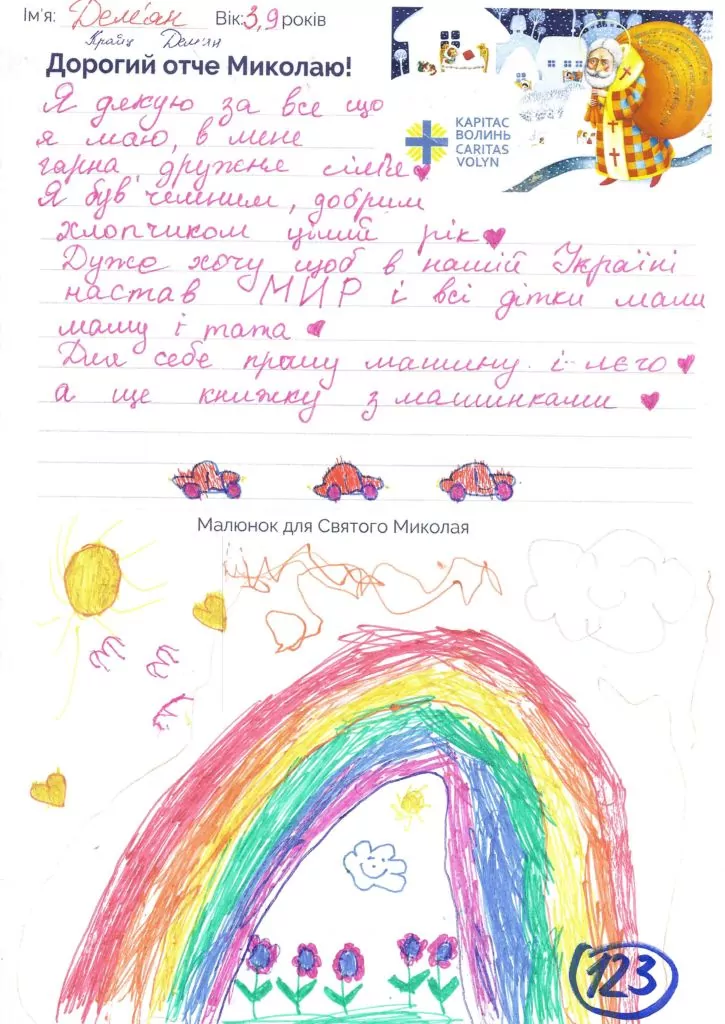 Ім'я: Дем'ян Вік: 3,9 років
Крайц Дем'ян
Дорогий отче Миколаю!
КАРІТАС
ВОЛИНЬ
CARITAS
VOLYN
Я дякую за все що
я маю, в мене
гарна, дружне сім'є
Я був чемним, добрим
хлопчиком цілий рік
Дуже хочу щоб в нашій Україні
настав МИР і всі дітки мали
маму і тата
Для себе прошу машину і лєго
а ще книжку з машинками
Малюнок для Святого Миколая
123